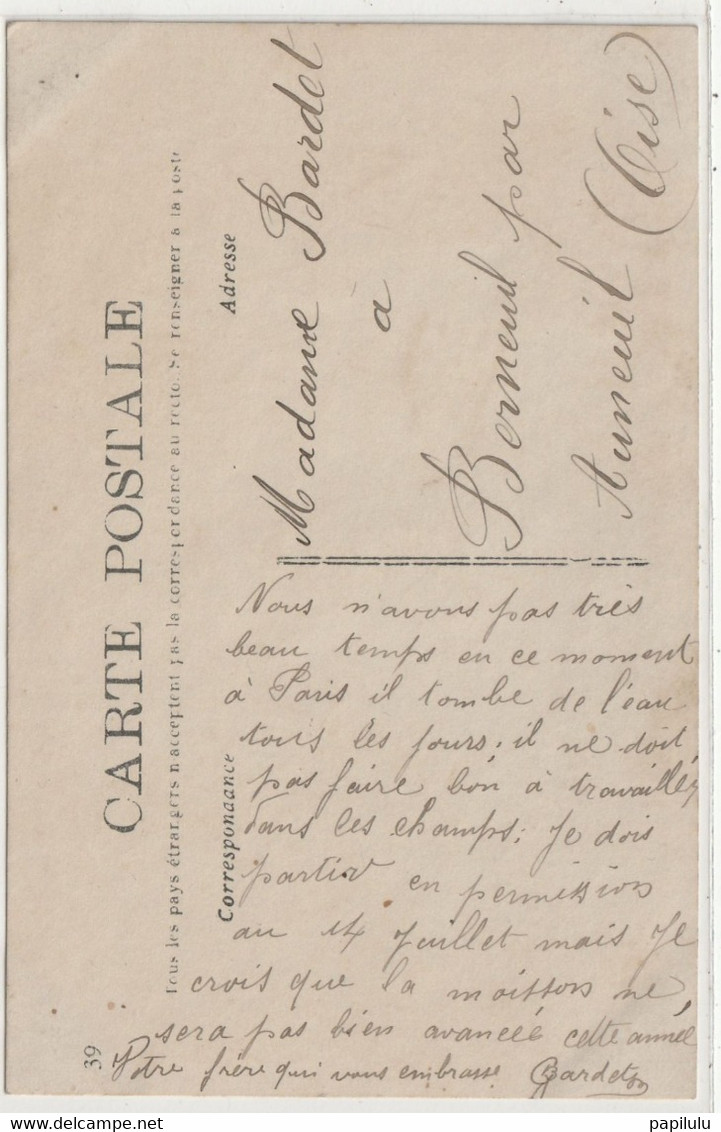 39
CARTE POSTALE
Tous les pays étrangers n'acceptent pas la correspondance au recto. Se renseigner à la poste
Correspondance
Adresse
Madame Bardet
à
Berneuil par
Auneuil (Oise)
Nous n'avons pas très
beau temps en ce moment
à Paris il tombe de l'eau
tous les jours. il ne doit
pas faire bon à travailler
dans les champs. Je dois
partir en permission
au 14 Juillet mais Je
crois que la moisson ne
sera pas bien avancée cette année
Votre frère qui vous embrasse Bardet
papilulu